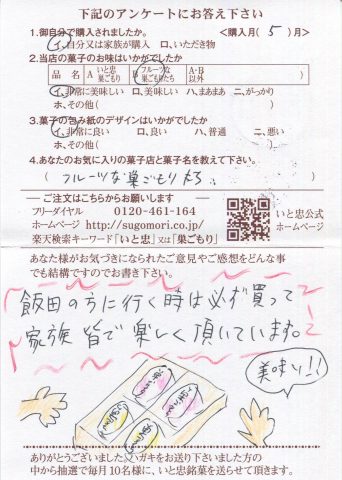 下記のアンケートにお答え下さい
1.御自分で購入されましたか。 <購入月( 5 )月>
イ.自分又は家族が購入 ロ.いただき物
2.当店の菓子のお味はいかがでしたか
品 名 A いと忠巣ごもり B フルーツな巣ごもりたち A・B以外 ( )
イ.非常に美味しい ロ.美味しい ハ.まあまあ ニ.がっかり
ホ.その他( )
3.菓子の包み紙のデザインはいかがでしたか
イ.非常に良い ロ.良い ハ.普通 ニ.悪い
ホ.その他( )
4.あなたのお気に入りの菓子店と菓子名を教えて下さい。
( フルーツな巣ごもりたち )
ご注文はこちらからお願いします
フリーダイヤル 0120-461-164
ホームページ http://sugomori.co.jp/
楽天検索キーワード「いと忠」又は「巣ごもり」
いと忠公式
ホームページ
あなた様がお気づきになられたご意見やご感想をどんな事
でも結構ですのでお書き下さい。
飯田の方に行く時は必ず買って
家族皆で楽しく頂いています。
美味い!!
ありがとうございました。ハガキをお送り下さいました方の
中から抽選で毎月10名様に、いと忠銘菓を送らせて頂きます。